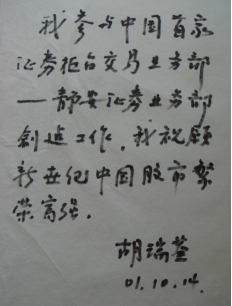 我参与中国首家
证券柜台交易业务部
——静安证券业务部
创造工作，我祝愿
新世纪中国股市繁
荣富强。
胡瑞荃
01.10.14.